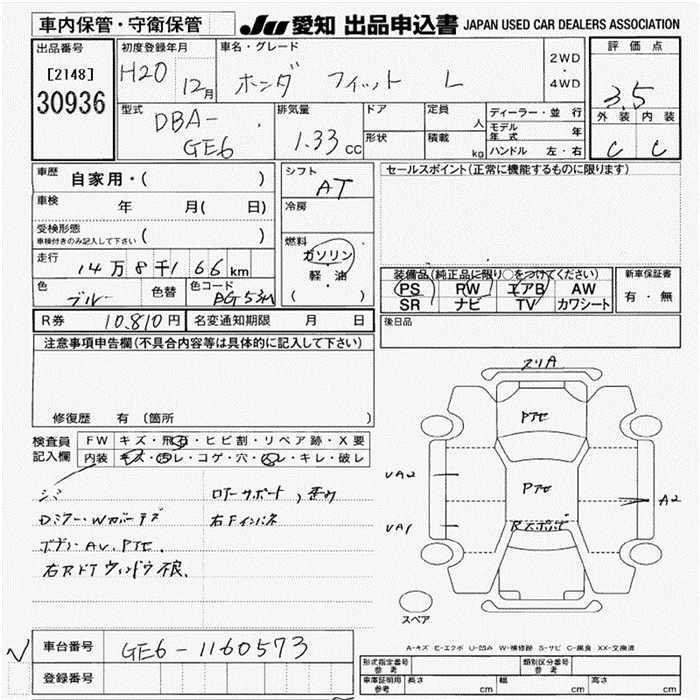 車内保管・守衛保管
JU 愛知 出品申込書 JAPAN USED CAR DEALERS ASSOCIATION
出品番号
[2148]
30936
初度登録年月
H20 12月
車名・グレード
ホンダ フィット L
2WD
・
4WD
評価点
3.5
外装 内装
C C
型式
DBA-
GE6
排気量
1.33 cc
ドア
形状
定員
人
積載
kg
ディーラー・並 行
モデル年式 年
ハンドル 左・右
車歴
自家用・( )
車検
年 月( 日)
受検形態
車検付きのみ記入して下さい ( )
走行
14万8千166km
色
ブルー
色替
色コード
BG53M
シフト
AT
冷房
燃料
ガソリン
・
軽・油
( )
セールスポイント(正常に機能するものに限ります)
装備品(純正品に限り○をつけてください)
PS PW エアB AW
SR ナビ TV カワシート
新車保証書
有・無
R券 10,810円
名変通知期限 月 日
後日品
注意事項申告欄(不具合内容等は具体的に記入して下さい)
修復歴 有 (箇所 )
検査員
記入欄
FW キズ・飛石・ヒビ割・リペア跡・X要
内装 キズ・汚レ・コゲ・穴・スレ・キレ・破レ
シミ
Dミラー・Wカバーキズ
ボディーAU.PTセ
右RドTウィンドウ不良
ロアーサポート,歪み
右Fインパネ
スリA
PTセ
PTセ
Rスポサビ
UA2
UA1
A2
スペア
A-キズ E-エクボ U-凹み W-補修跡 S-サビ C-腐食 XX-交換済
車台番号 GE6-1160573
登録番号
形式指定番号
参 考
類別区分番号
参 考
車庫証明用
参 考
長さ cm
幅 cm
高さ cm